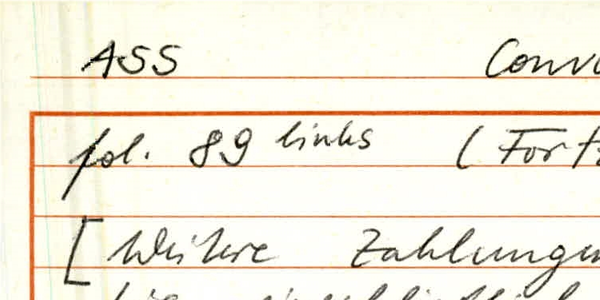 ASS Conv
fol. 89 links (Forts
[Weitere Zahlungen